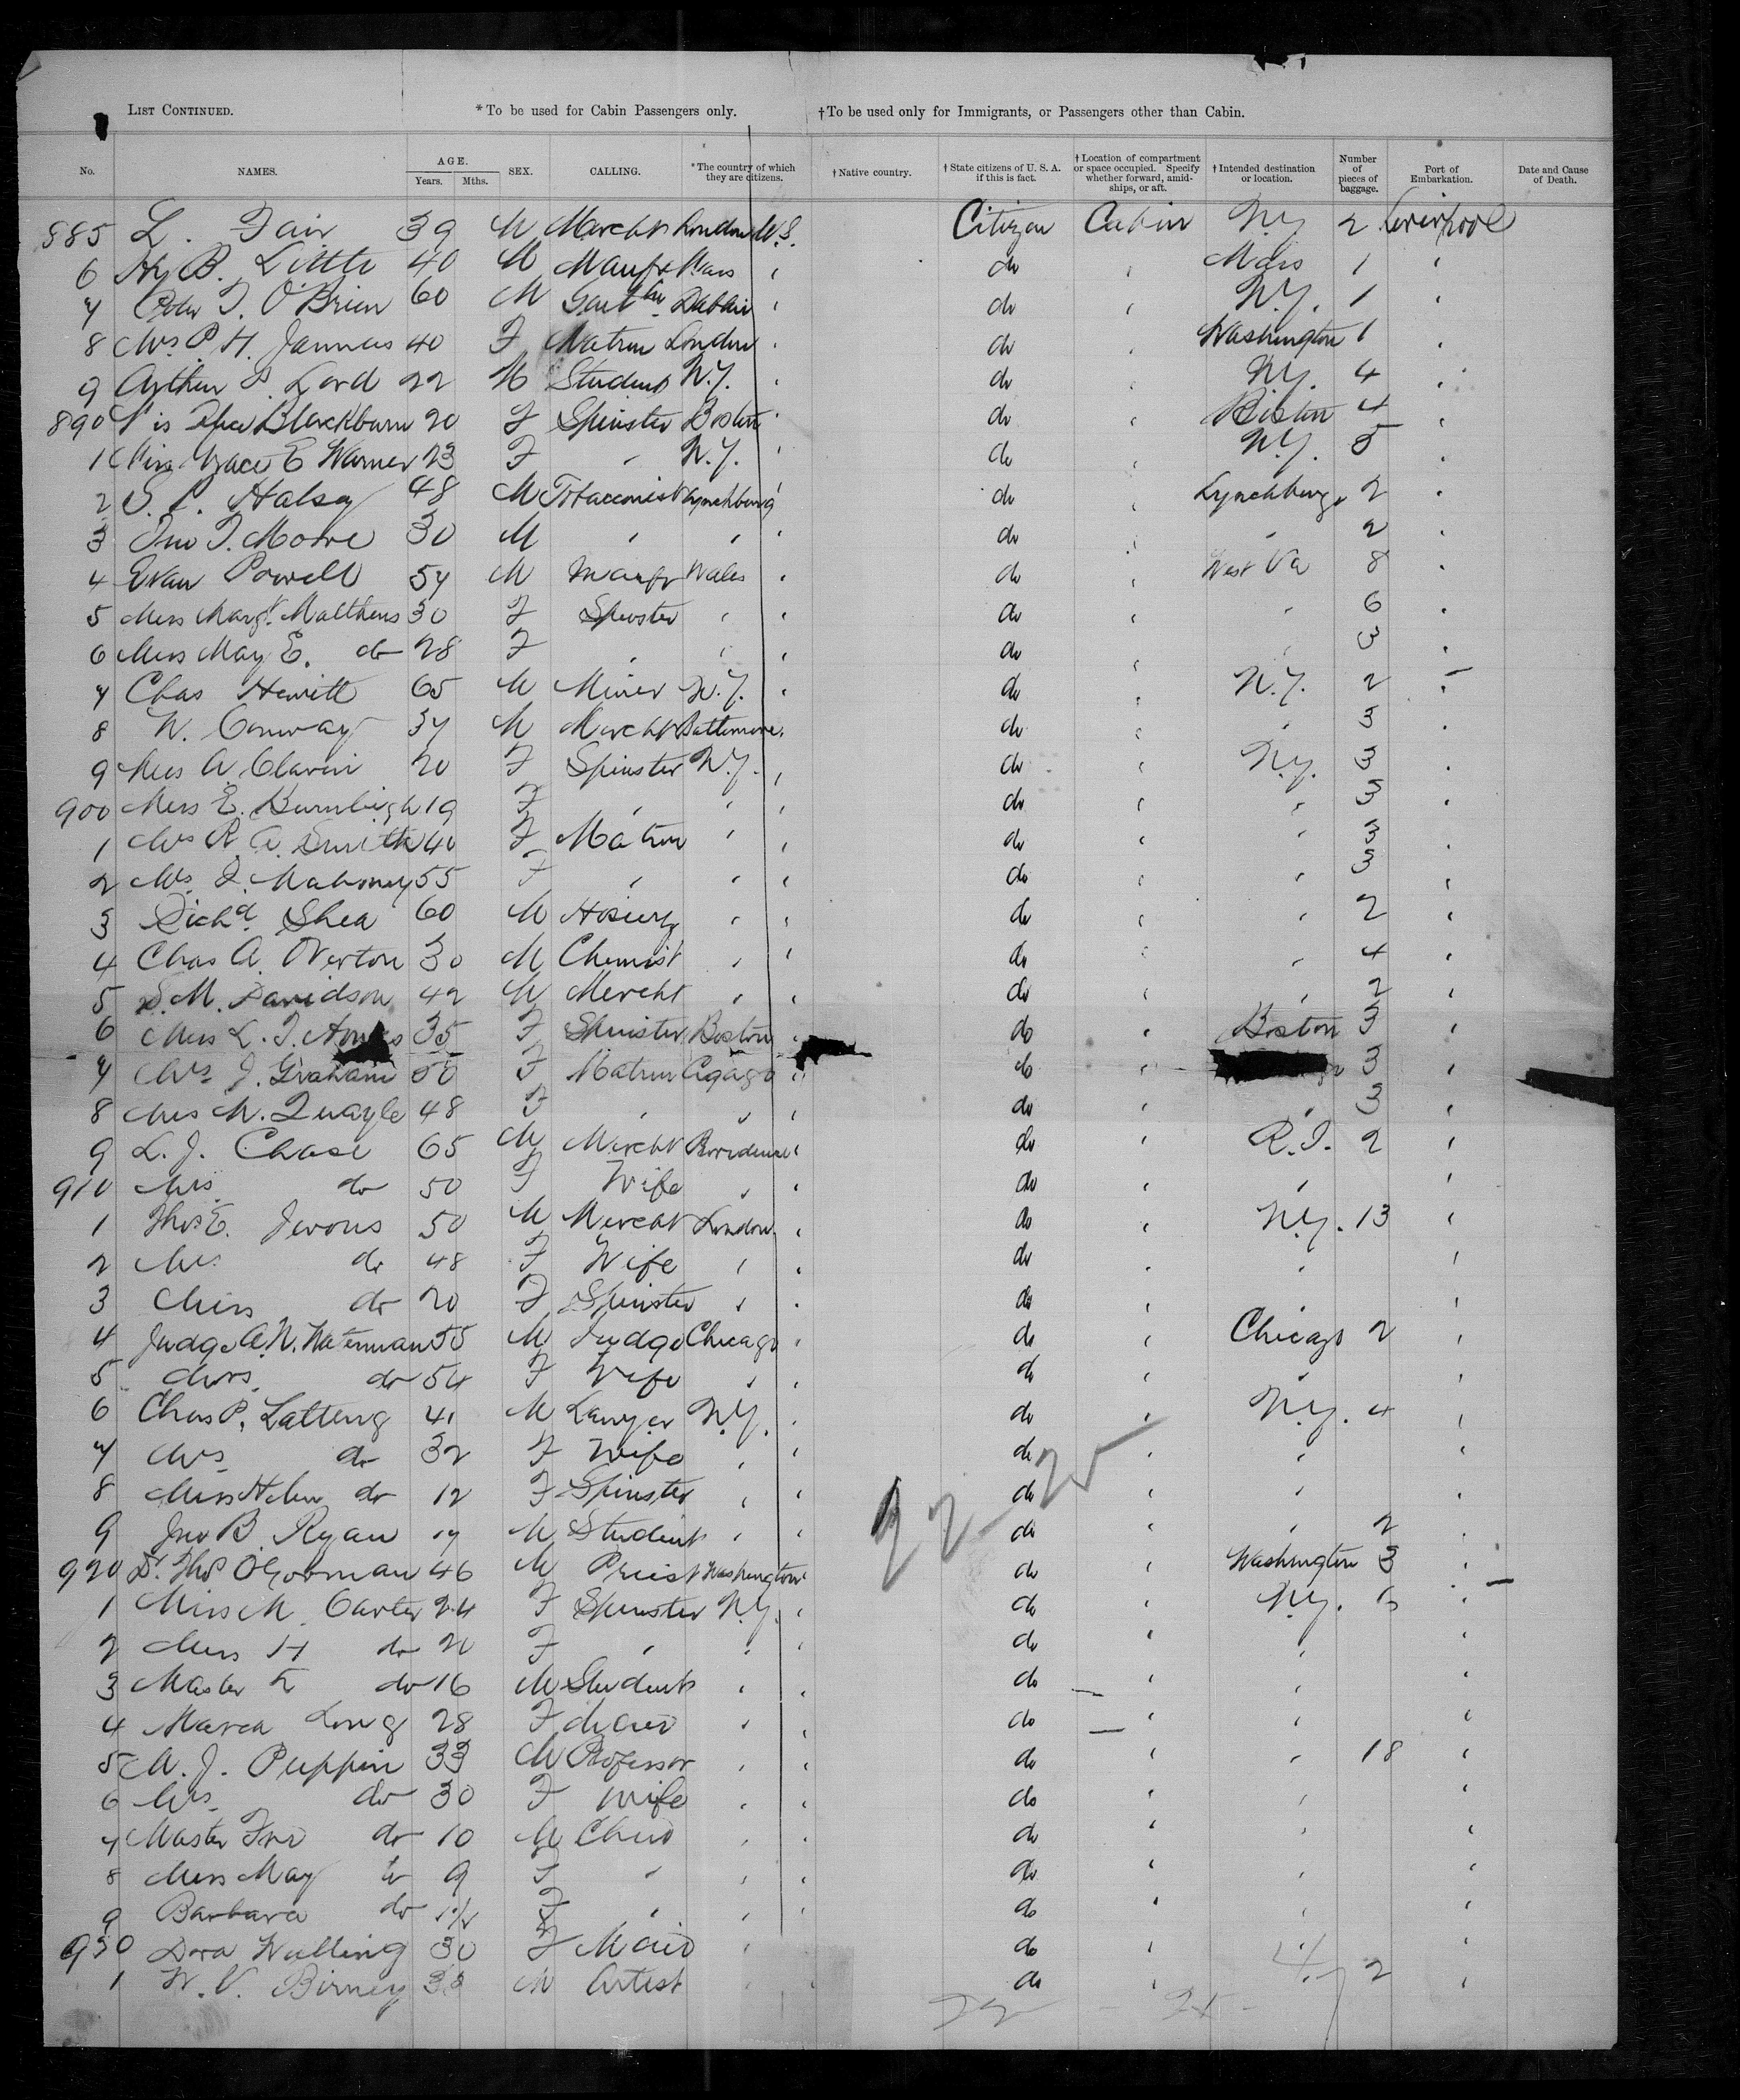 LIST CONTINUED. * To be used for Cabin Passengers only. † To be used only for Immigrants, or Passengers other than Cabin.
No. NAMES. AGE. Years. Mths. SEX. CALLING. * The country of which they are citizens. † Native country. † State citizens of U. S. A. if this is fact. † Location of compartment or space occupied. Specify whether forward, amid-ships, or aft. † Intended destination or location. Number of pieces of baggage. Port of Embarkation. Date and Cause of Death.
885 L. Fair 39 M Marcht London U.S. Citizen Cabin N.Y. 2 Liverpool
6 Hy B. Little 40 M Manufr Mass " do " Mass 1 "
7 Peter J. O'Brien 60 M Dublin " do " N.Y. 1 "
8 Mrs P. H. 40 F Matron London " do " Washington 1 "
9 Arthur P. Lord 22 M Student N.Y. " do " N.Y. 4 "
890 Blackburn 20 F Spinster Boston " do " Boston 4 "
1 Miss Grace E Warner 23 F " N.Y. " do " N.Y. 5 "
2 S. C. Halsey 48 M Tobacconist Lynchburg " do " Lynchburg 2 "
3 Jno T. Moore 30 M " " " do " " 2 "
4 Evan Powell 57 M Manfr Wales " do " West Va 8 "
5 Miss Margt Matthews 30 F Spinster " " do " " 6 "
6 Miss May E. do 28 F " " " do " " 3 "
7 Chas Hewitt 65 M Miner N.Y. " do " N.Y. 2 "
8 W. Conway 37 M Marcht Baltimore " do " " 3 "
9 Miss A. Clavin 20 F Spinster N.Y. " do " N.Y. 3 "
900 Miss E. 19 F " " " do " " 3 "
1 Mrs R. A. Smith 40 F Matron " " do " " 3 "
2 Mrs J. Mahoney 55 F " " " do " " 3 "
3 Richd Shea 60 M Hosiery " " do " " 2 "
4 Chas A. Overton 30 M Chemist " " do " " 4 "
5 S. M. Davidson 42 M Mercht " " do " " 2 "
6 Miss L. J. 35 F Spinster Boston " do " Boston 3 "
7 Mrs J. Graham 50 F Matron " do " 3 "
8 Mrs M. Quayle 48 F " " " do " " 3 "
9 L. J. Chase 65 M Mercht Providence " do " R.I. 2 "
910 Mrs do 50 F Wife " " do " " "
1 Thos E. Jevons 50 M Mercht London " do " N.Y. 13 "
2 Mrs do 48 F Wife " " do " " "
3 Miss do 20 F Spinster " " do " " "
4 Judge A. N. Waterman 55 M Judge Chicago " do " Chicago 2 "
5 Mrs do 54 F Wife " " do " "
6 Chas P. Latting 41 M Lawyer N.Y. " do " N.Y. 4 "
7 Mrs do 32 F Wife " " do " " "
8 Miss Helen do 12 F Spinster " " do " " "
9 Jno B Ryan 17 M Student " " do " " 2 "
920 Dr Thos O'Gorman 46 M Priest Washington " do " Washington 3 "
1 Miss M. Carter 24 F Spinster N.Y. " do " N.Y. "
2 Miss H do 20 F " " " do " " "
3 Master do 16 M Student " " do " " "
4 Maria Long 28 F Maid " " do " " "
5 M. J. Puppin 33 M Professor " " do " " 18 "
6 Mrs do 30 F Wife " " do " " "
7 Master do 10 M Child " " do " " "
8 Miss May do 9 F " " " do " " "
9 Barbara do F " " " do " " "
930 Dora Walling 30 F Maid " do " "
1 W. V. Birney 33 M Artist " " do " 2 "